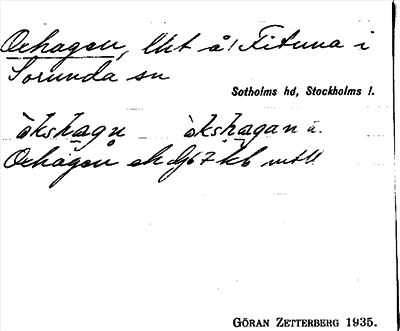 Oxhagen, lht å! Fituna i
Sorunda sn
Sotholms hd, Stockholms l.
òkshagn òkshagan ä.
Oxhagen ek
GÖRAN ZETTERBERG 1935.